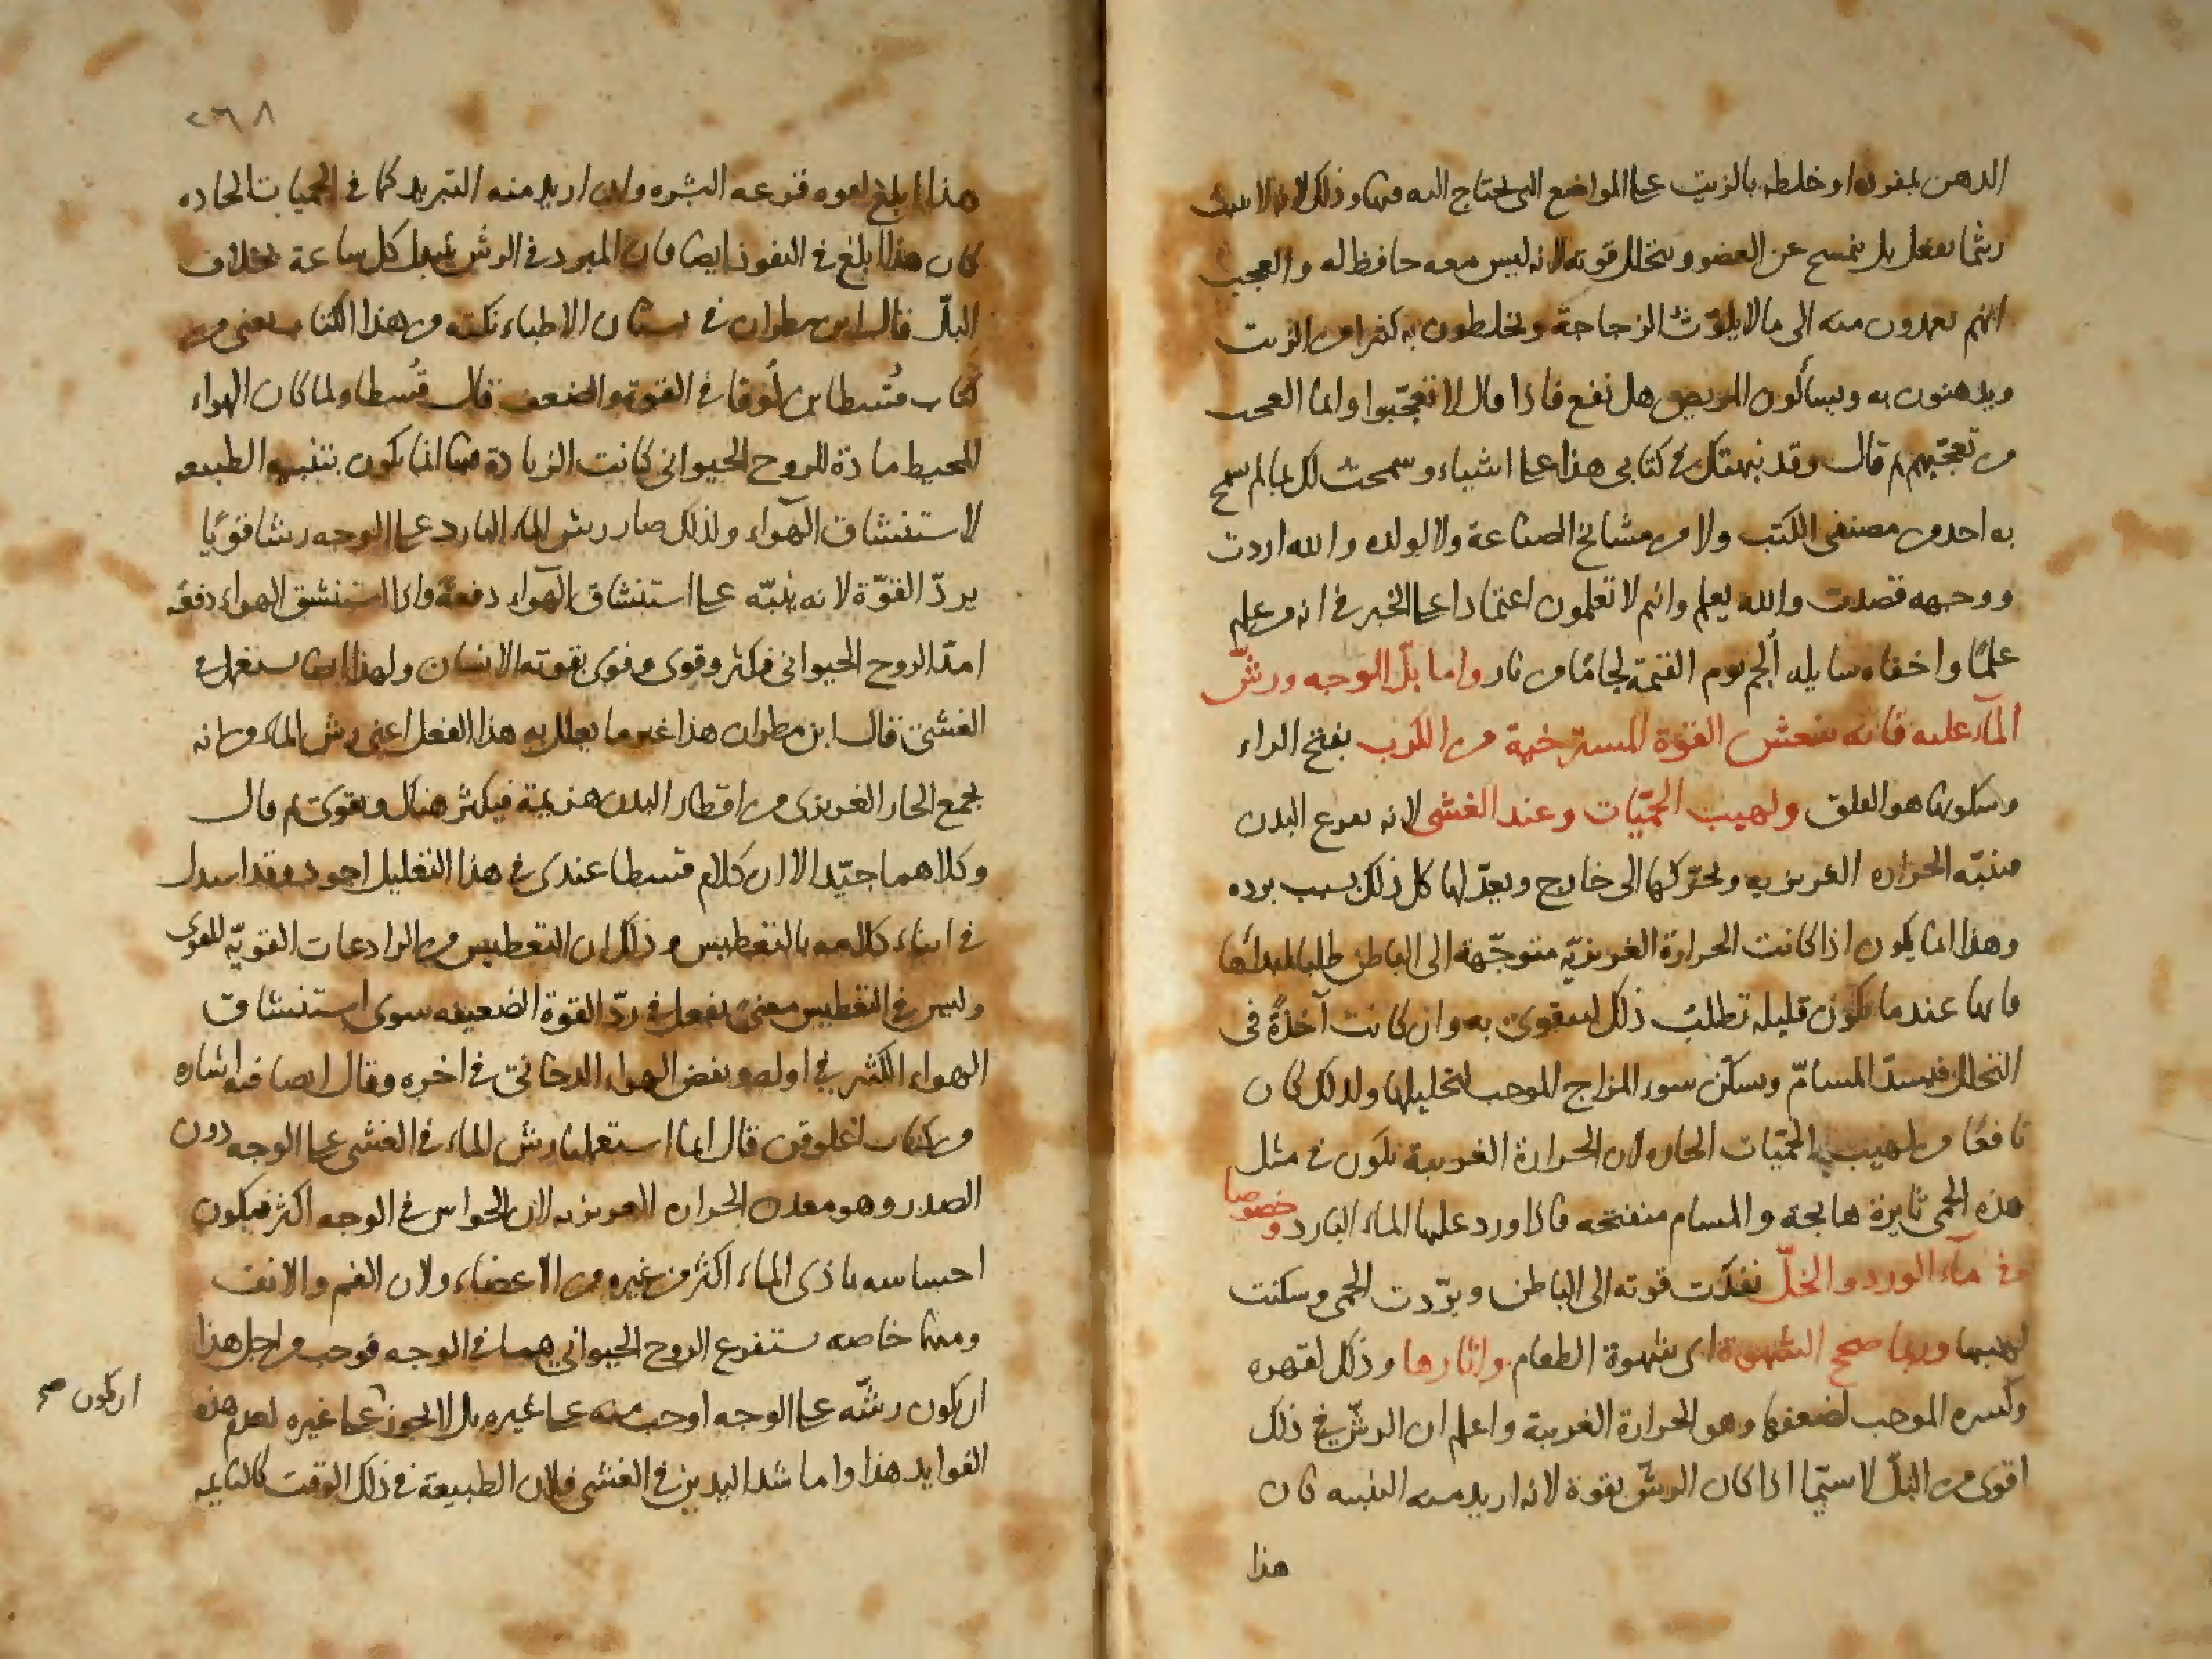 الدهن بمفرده او خلطه بالزيت على المواضع التى يحتاج اليه فيها وذلك لانه لا يلبث
ريثما يفعل بل ينمسح عن العضو ويتحلل قوته لانه ليس معه حافظ له والعجب
انهم يعمدون منه الى ما لا يلوّث الزجاجة ويخلطون به كثيرا من الزيت
ويدهنون به ويسألون المريض هل نفع فاذا قال لا تعجّبوا وانما العجب
من تعجّبهم ثم قال وقد نبهتك فى كتابى هذا على اشياء وسمحت لك بما لم يسمح
به احد من مصنفى الكتب ولا من مشايخ الصناعة ولا لولده والله اردت
ووجهه قصدت والله يعلم وانتم لا تعلمون اعتمادا على الخبر فى انه من علم
علمًا واخفاه سايله ألجم يوم القيمة لجامًا من نار واما بلّ الوجه ورشّ
المآء عليه فانه ينعش القوّة المسترخية من الكرب بفتح الراء
وسكونها هو القلق ولهيب الحمّيات وعند الغشى لانه يقرع البدن
منبّه الحراره الغريزيه ويحرّكها الى خارج ويعدّلها كل ذلك بسبب برده
وهذا انما يكون اذا كانت الحرارة الغريزيّه متوجّهة الى الباطن طلبا لمبدائها
فانها عندما تكون قليله تطلب ذلك لتتقوى به وان كانت آخذةً فى
التحلل فيسدّ المسامّ ويسكّن سوء المزاج الموجب لتحليلها ولذلك كان
نافعًا من لهيب الحمّيات الحاره لان الحرارة الغريبة تكون فى مثل
هذه الحمى ثايرة هايجة والمسام منفتحه فاذا ورد عليها الماء البارد وخصوصا
فى مآء الورد والخلّ نفذت قوته الى الباطن وبرّدت الحمى وسكنت
لهيبها وربما صحح الشهوة اى شهوة الطعام واثارها وذلك لقهره
وكسره الموجب لضعفها وهو الحرارة الغريبة واعلم ان الرشّ فى ذلك
اقوى من البلّ لا سيّما اذا كان الرشّ بقوة لانه اريد منه التنبيه كان
هذا
٢٦٨
هذا ابلغ لقوه قرعه البشره وان اريد منه التبريد كما فى الحميات الحاده
كان هذا ابلغ فى النفوذ ايضا فان المبرد فى الرش يتبدل كل ساعة بخلاف
البلّ قال ابن مطران فى بستان الاطباء نكته من هذا الكتاب يعنى من
كتاب قُسطا بن لُوقا فى القوة والضعف قال قُسطا ولما كان الهواء
المحيط مادّة للروح الحيوانى كانت الزيادة فيها انما تكون بتنبيه الطبيعه
لاستنشاق الهوآء ولذلك صار رش الماء البارد على الوجه رشا قويًا
يردّ القوّة لانه ينبّه على استنشاق الهوآء دفعةً واذا استنشق الهواء دفعه
امتدّ الروح الحيوانى فكثر وقوى وقوى بقوته الانسان ولهذا ايضا يستعمل فى
الغشى قال ابن مطران هذا غير ما يعلل به هذا الفعل اعنى رش الماء من انه
يجمع الحار الغريزى من اقطار البدن هزيمة فيكثر هناك ويقوى ثم قال
وكلاهما جيّد الا ان كلام قسطا عندى فى هذا التعليل اجود وقد استدل
فى اثناء كلامه بالتعطيس وذلك ان التعطيس من الرادعات القويّه للقوى
وليس فى التعطيس معنى يفعل فى ردّ القوة الضعيفه سوى استنشاق
الهواء الكثير فى اوله ونفض الهواء الدخانى فى اخره وقال ايضا فيه اشاره
من كتاب اغلوقن قال انما استعملنا رش الماء فى الغشى على الوجه دون
الصدر وهو معدن الحراره الغريزيه لان الحواس فى الوجه اكثر فيكون
احساسه باذى الماء اكثر من غيره من الاعضاء ولان الفم والانف
ومنها خاصه يستفرغ الروح الحيوانى هما فى الوجه فوجب من اجل هذا
ان يكون رشّه على الوجه اوجب منه على غيره بل لا يجوز على غيره لعدم هذه
ان يكون صح
الفوايد هذا واما شد اليدين فى الغشى فلان الطبيعة فى ذلك الوقت كالنايمه